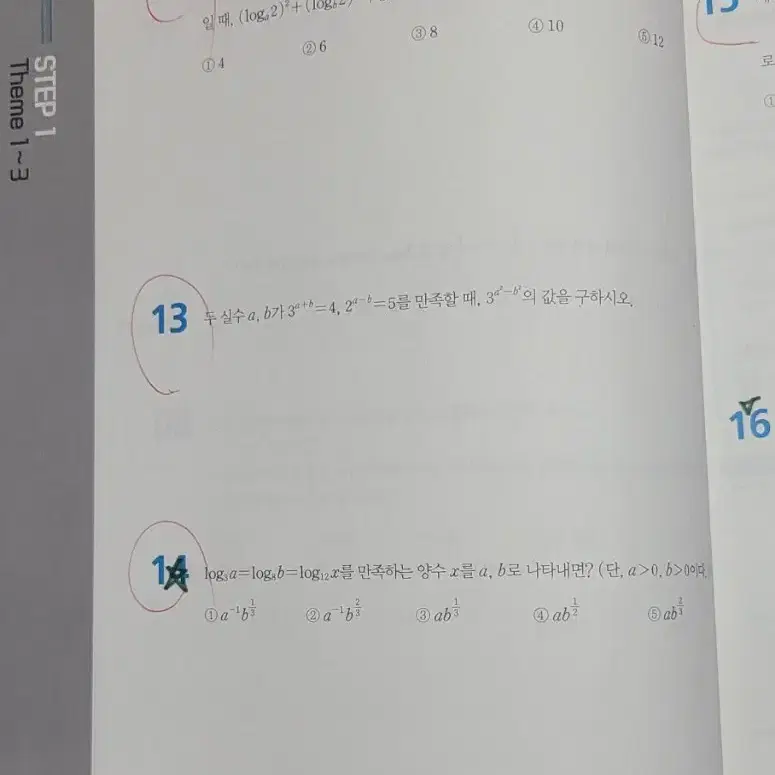 일 때, (logₐ2)²+(log_b2)
① 4 ② 6 ③ 8 ④ 10 ⑤ 12
STEP 1
Theme 1~3
13 두 실수 a, b가 3^{a+b}=4, 2^{a-b}=5를 만족할 때, 3^{a²-b²}의 값을 구하시오.
14 log₃a=log₈b=log₁₂x를 만족하는 양수 x를 a, b로 나타내면? (단, a>0, b>0이다.
① a^{-1}b^{1/3} ② a^{-1}b^{2/3} ③ ab^{1/3} ④ ab^{1/2} ⑤ ab^{2/3}
15
로
①
16